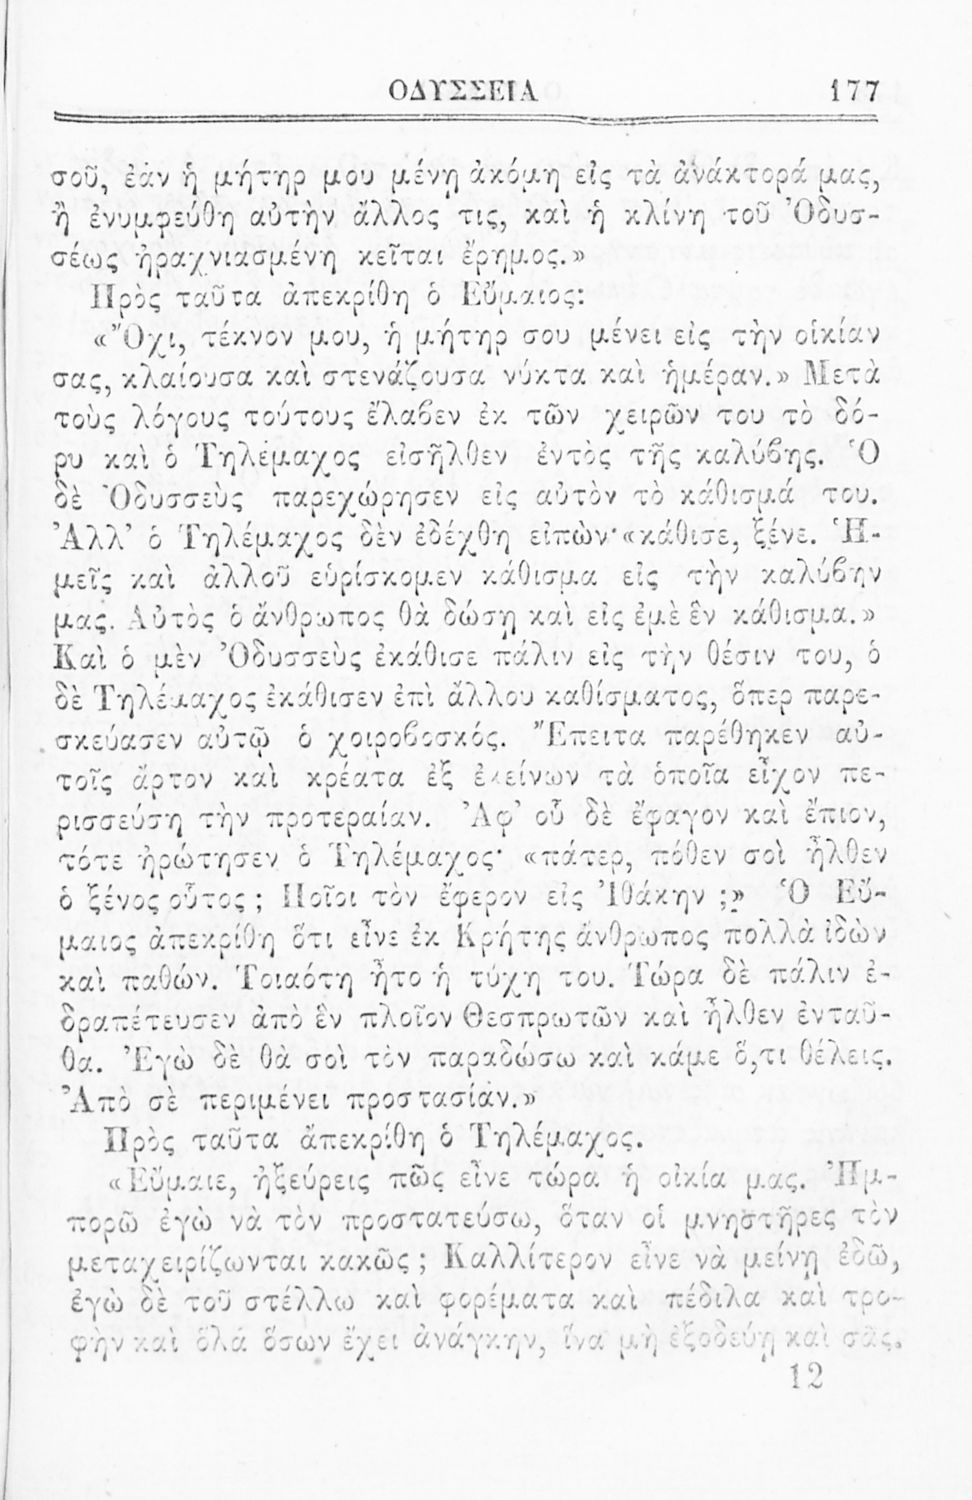 ΟΔΥΣΣΕΙΑ 177
σοῦ, ἐάν ἡ μήτηρ μου μένῃ ἀκόμη εἰς τὰ ἀνάκτορά μας,
ἢ ἐνυμφεύθη αὐτὴν ἄλλος τις, καὶ ἡ κλίνη τοῦ Ὀδυσ-
σέως ἠραχνιασμένη κεῖται ἔρημος.»
Πρὸς ταῦτα ἀπεκρίθη ὁ Εὔμαιος:
«Ὄχι, τέκνον μου, ἡ μήτηρ σου μένει εἰς τὴν οἰκίαν
σας, κλαίουσα καὶ στενάζουσα νύκτα καὶ ἡμέραν.» Μετὰ
τοὺς λόγους τούτους ἔλαβεν ἐκ τῶν χειρῶν του τὸ δό-
ρυ καὶ ὁ Τηλέμαχος εἰσῆλθεν ἐντὸς τῆς καλύβης. Ὁ
δὲ Ὀδυσσεὺς παρεχώρησεν εἰς αὐτὸν τὸ κάθισμά του.
Ἀλλ' ὁ Τηλέμαχος δὲν ἐδέχθη εἰπών· «κάθισε, ξένε. Ἡ-
μεῖς καὶ ἀλλοῦ εὑρίσκομεν κάθισμα εἰς τὴν καλύβην
μας. Αὐτὸς ὁ ἄνθρωπος θὰ δώσῃ καὶ εἰς ἐμὲ ἓν κάθισμα.»
Καὶ ὁ μὲν Ὀδυσσεὺς ἐκάθισε πάλιν εἰς τὴν θέσιν του, ὁ
δὲ Τηλέμαχος ἐκάθισεν ἐπὶ ἄλλου καθίσματος, ὅπερ παρε-
σκεύασεν αὐτῷ ὁ χοιροβοσκός. Ἔπειτα παρέθηκεν αὐ-
τοῖς ἄρτον καὶ κρέατα ἐξ ἐκείνων τὰ ὁποῖα εἶχον πε-
ρισσεύσῃ τὴν προτεραίαν. Ἀφ' οὗ δὲ ἔφαγον καὶ ἔπιον,
τότε ἠρώτησεν ὁ Τηλέμαχος· «πάτερ, πόθεν σοὶ ἦλθεν
ὁ ξένος οὗτος ; Ποῖοι τὸν ἔφερον εἰς Ἰθάκην ;» Ὁ Εὔ-
μαιος ἀπεκρίθη ὅτι εἶνε ἐκ Κρήτης ἄνθρωπος πολλὰ ἰδὼν
καὶ παθών. Τοιαότη ἦτο ἡ τύχη του. Τώρα δὲ πάλιν ἐ-
δραπέτευσεν ἀπὸ ἓν πλοῖον Θεσπρωτῶν καὶ ἦλθεν ἐνταῦ-
θα. Ἐγὼ δὲ θὰ σοὶ τὸν παραδώσω καὶ κάμε ὅ,τι θέλεις.
Ἀπὸ σὲ περιμένει προστασίαν.»
Πρὸς ταῦτα ἀπεκρίθη ὁ Τηλέμαχος.
«Εὔμαιε, ἠξεύρεις πῶς εἶνε τώρα ἡ οἰκία μας. Ἠμ-
πορῶ ἐγὼ νὰ τὸν προστατεύσω, ὅταν οἱ μνηστῆρες τὸν
μεταχειρίζωνται κακῶς ; Καλλίτερον εἶνε νὰ μείνῃ ἐδῶ,
ἐγὼ δὲ τοῦ στέλλω καὶ φορέματα καὶ πέδιλα καὶ τρο-
φὴν καὶ ὅλά ὅσων ἔχει ἀνάγκην, ἵνα μὴ ἐξοδεύῃ καὶ σᾶς.
12